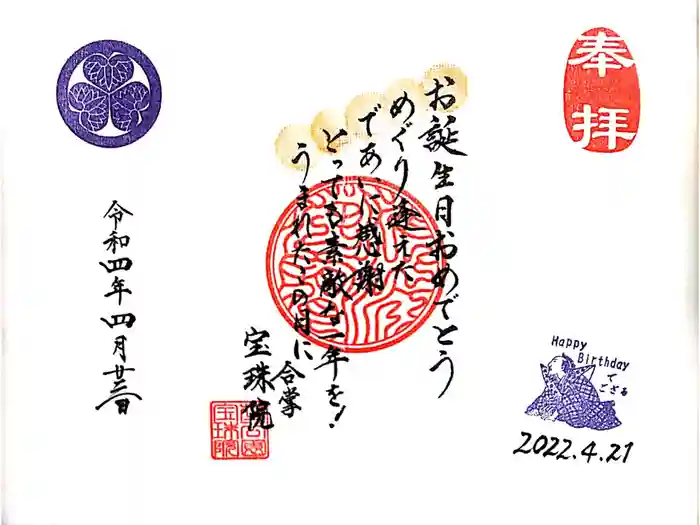 奉拝
お誕生日おめでとう
めぐり逢えた
であいに感謝
とっても素敵な一年を!
うまれたこの日に
合掌
宝珠院
宝珠院
令和四年四月廿三日
Happy
Birthday
で
ござる
2022.4.21